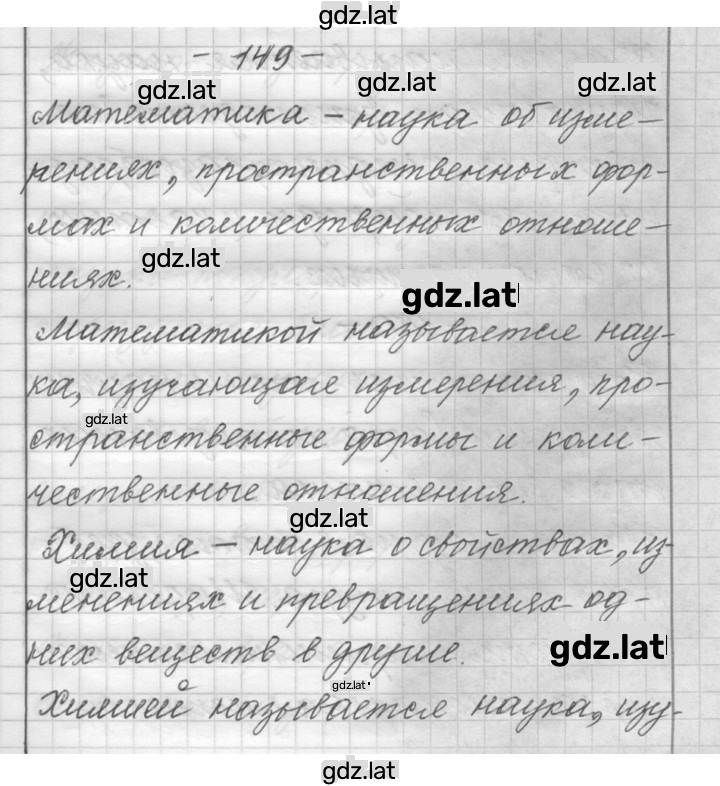 gdz.lat
- 149 -
gdz.lat gdz.lat gdz.lat
Математика - наука об изме-
рениях, пространственных фор-
мах и количественных отноше-
gdz.lat
ниях.
gdz.lat
Математикой называется нау-
ка, изучающая измерения, про-
gdz.lat
странственные формы и коли-
чественные отношения.
gdz.lat
Химия - наука о свойствах, из-
gdz.lat
менениях и превращениях од-
них веществ в другие.
gdz.lat
gdz.lat
Химией называется наука, изу-
gdz.lat